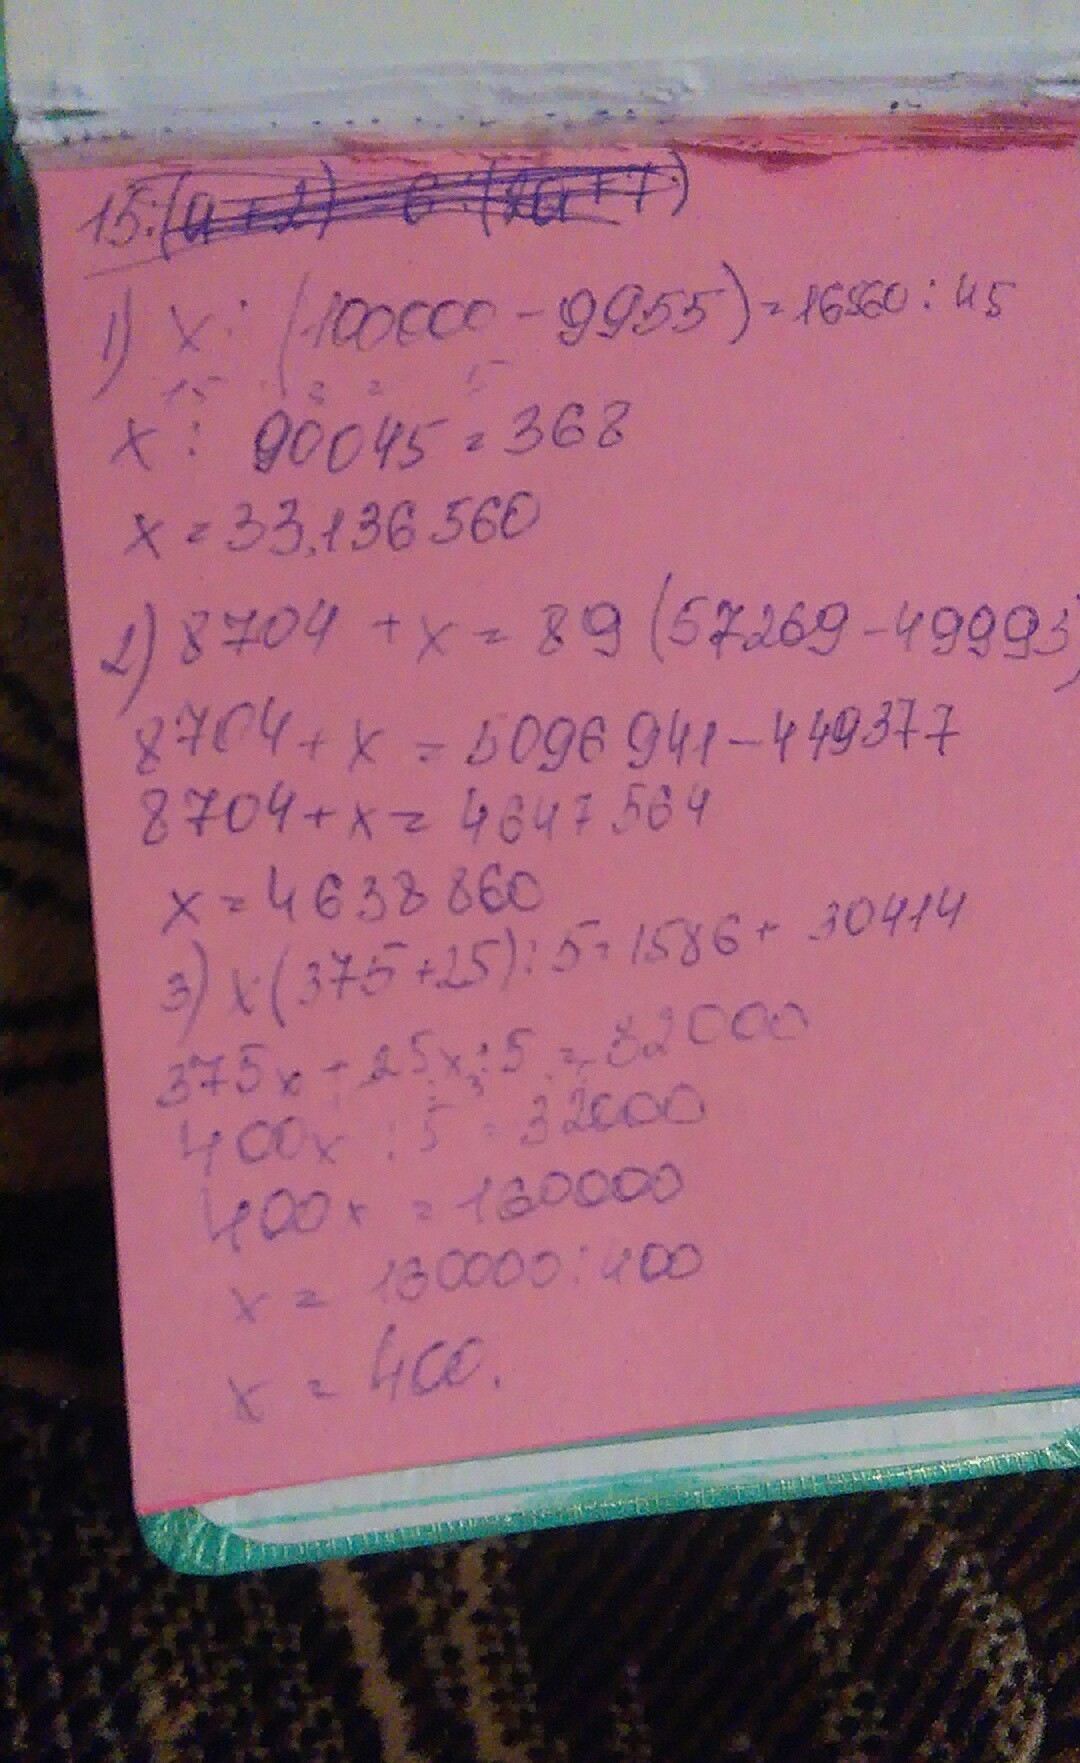 15:(a+2) = 6:(2a+7)
1) x : (100000 - 9955) = 16560 : 45
x : 90045 = 368
x = 33.136560
2) 8704 + x = 89 (57269 - 49993)
8704 + x = 5096941 - 449377
8704 + x = 4647564
x = 4638860
3) x(375+25):5 = 1586 + 30414
375x + 25x : 5 = 32000
400x : 5 = 32000
400x = 160000
x = 160000 : 400
x = 400.